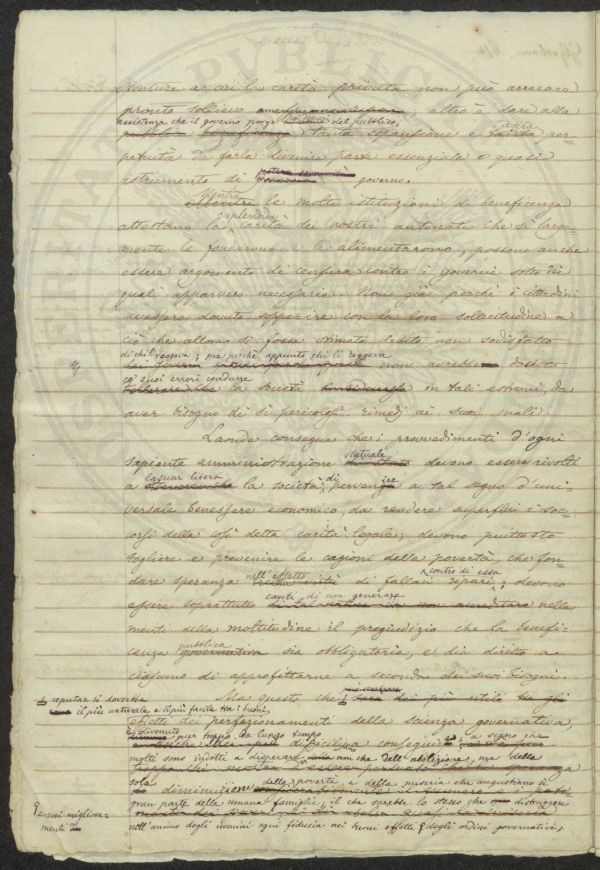 sventure a cui la carità privata non può arrecare
pronto sollievo, altro è dare alla
assistenza che il governo porge del pubblico,
pubblica beneficenza tanta espansione e tanta per-
petuità da farla divenire parte essenziale o quasi
istrumento di governo.
Mentre le molte istituzioni di beneficenza
attestano la splendida carità dei nostri antenati che sì larga-
mente le fondarono e le alimentarono, possono anche
essere argomento di censura contro i governi sotto dei
quali apparvero necessarie. Non già perchè i cittadini
avessero dovuto supperire con la loro sollecitudine a
ciò che allora si fosse stimato debito non sodisfatto
di chi li reggeva; ma perchè appunto chi li reggeva non avrebbe dovuto
co' suoi errori condurre la società in tali estremi, da
aver bisogno di sì pericolosi rimedi ai suoi mali.
Laonde consegua che i provvedimenti d'ogni
sapiente amministrazione statuale devono essere rivolti
a lasciar libera la società di pervenire a tal segno d'uni-
versale benessere economico, da rendere superflui i soc-
corsi della così detta carità legale; devono piuttosto
togliere e prevenire le cagioni della povertà, che fon-
dare speranza nell'effetto di fallaci ripari contro di essa; devono
essere soprattutto cauti di non generare nelle
menti della moltitudine il pregiudizio che la benefi-
cenza pubblica sia obbligatoria, e dia diritto a
ciascuno di approfittarne a seconda dei suoi bisogni.
Ma questo che
reputar si dovrebbe
il più naturale e il più facile tra i buoni
effetti dei perfezionamenti della scienza governativa,
è divenuto pur troppo da lungo tempo
difficile a conseguire, a segno che
molti sono indotti a disperare non che dell'abolizione, ma della
sola diminuzione della povertà e della miseria che angustiano sì
gran parte della umana famiglia; il che sarebbe lo stesso che distruggere
nell'animo degli uomini ogni fiducia nei buoni effetti degli ordini governativi,
e nei migliora-
menti